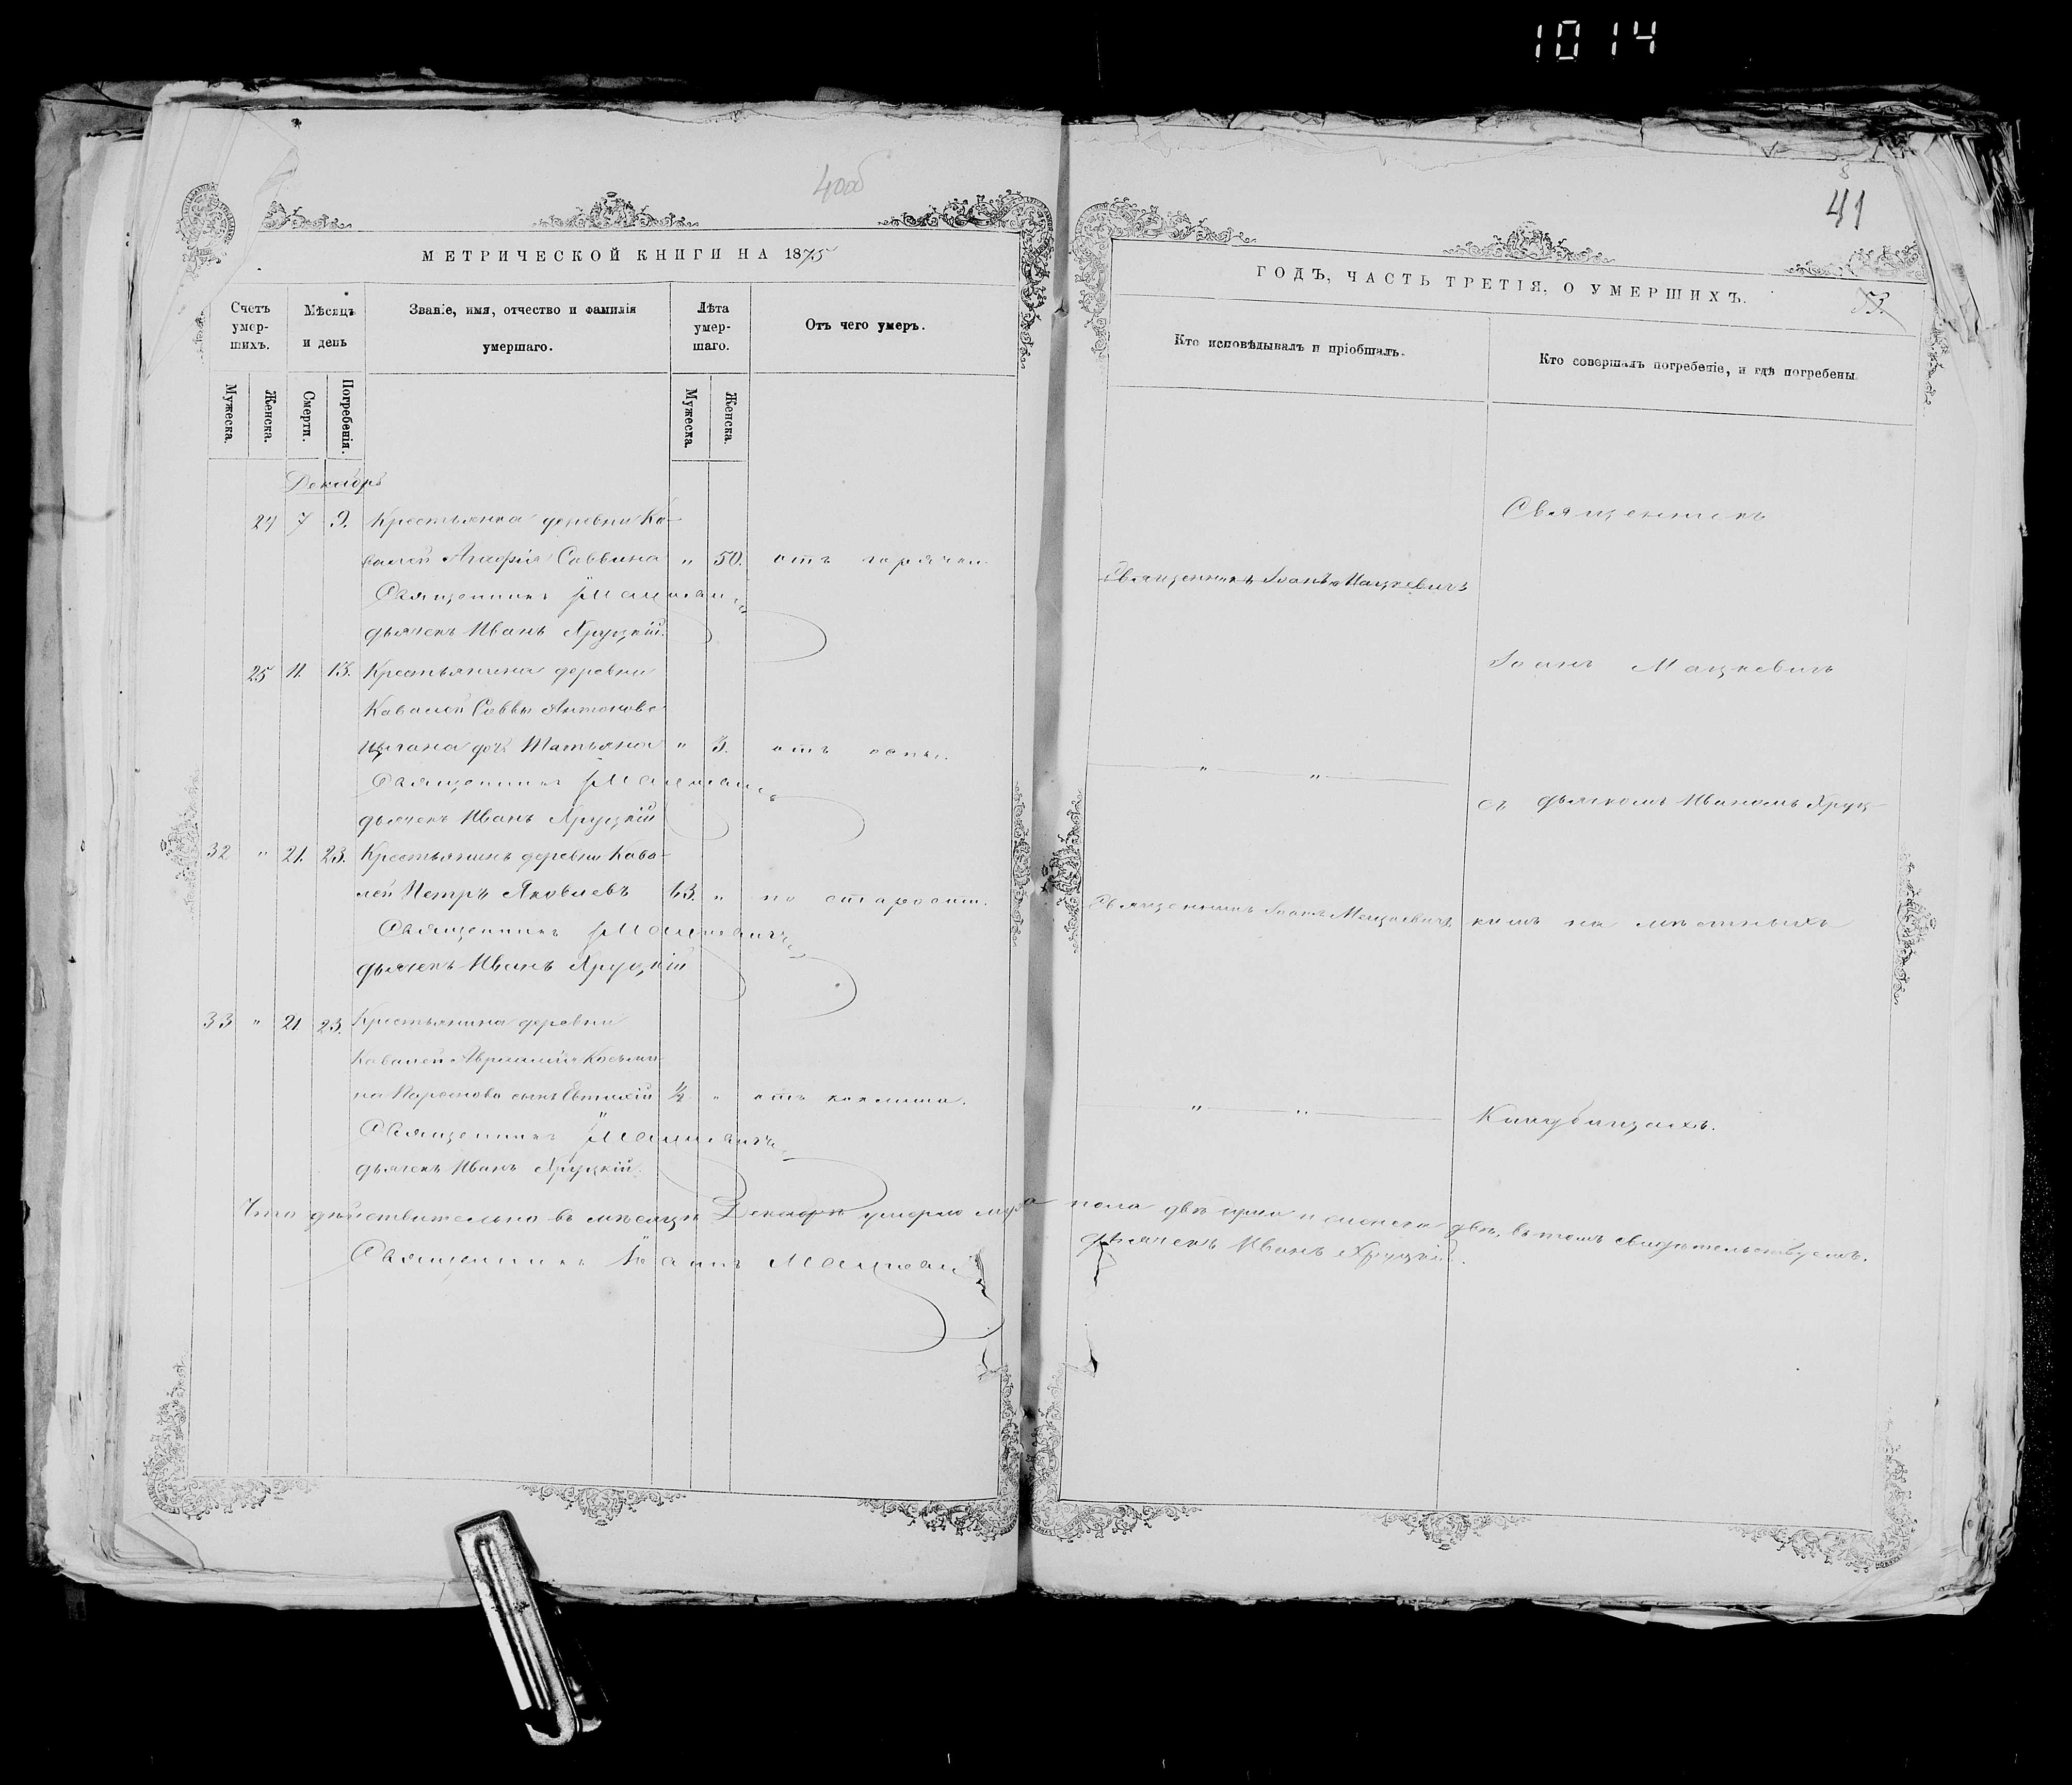 1014
40об
МЕТРИЧЕСКОЙ КНИГИ НА 1875
Счетъ умер-шихъ.
Мѣсяцъ и день
Званіе, имя, отчество и фамилія умершаго.
Лѣта умер-шаго.
Отъ чего умеръ.
Мужеска.
Женска.
Смерти.
Погребенія.
Мужеска.
Женска.
Декабрь
24 7 9. Крестьянка деревни Ко-
валей Агафія Саввина " 50. отъ горячки.
Священникъ
дьячекъ Иванъ Хруцкій.
25 11. 13. Крестьянина деревни
Ковалей Саввы Антонова
Цыгана дочь Татьяна " 3. отъ
Священникъ
дьячекъ Иванъ Хруцкій
32 " 21. 23. Крестьянинъ деревни Кова-
лей Петръ Яковлевъ 63. " по старости.
Священникъ
дьячекъ Иванъ Хруцкій
33 " 21 23. Крестьянина деревни
Ковалей Козьми-
на сынъ Евтихій ½ " отъ коклюша.
Священникъ
дьячекъ Иванъ Хруцкій.
Что дѣйствительно въ мѣсяцѣ Декабрѣ умерло муж
Священникъ Іоаннъ
41
ГОДЪ, ЧАСТЬ ТРЕТІЯ, О УМЕРШИХЪ.
53.
Кто исповѣдывалъ и пріобщалъ.
Кто совершалъ погребеніе, и гдѣ погребены.
Священникъ
Священникъ Іоаннъ Мацкевичъ
Іоаннъ Мацкевичъ
" "
съ дьячкомъ Иваномъ Хруц-
Священникъ Іоаннъ Мацкевичъ
кимъ на мѣстныхъ
" "
пола двѣ души и женска двѣ, въ томъ свидѣтельствуемъ.
дьячекъ Иванъ Хруцкій.